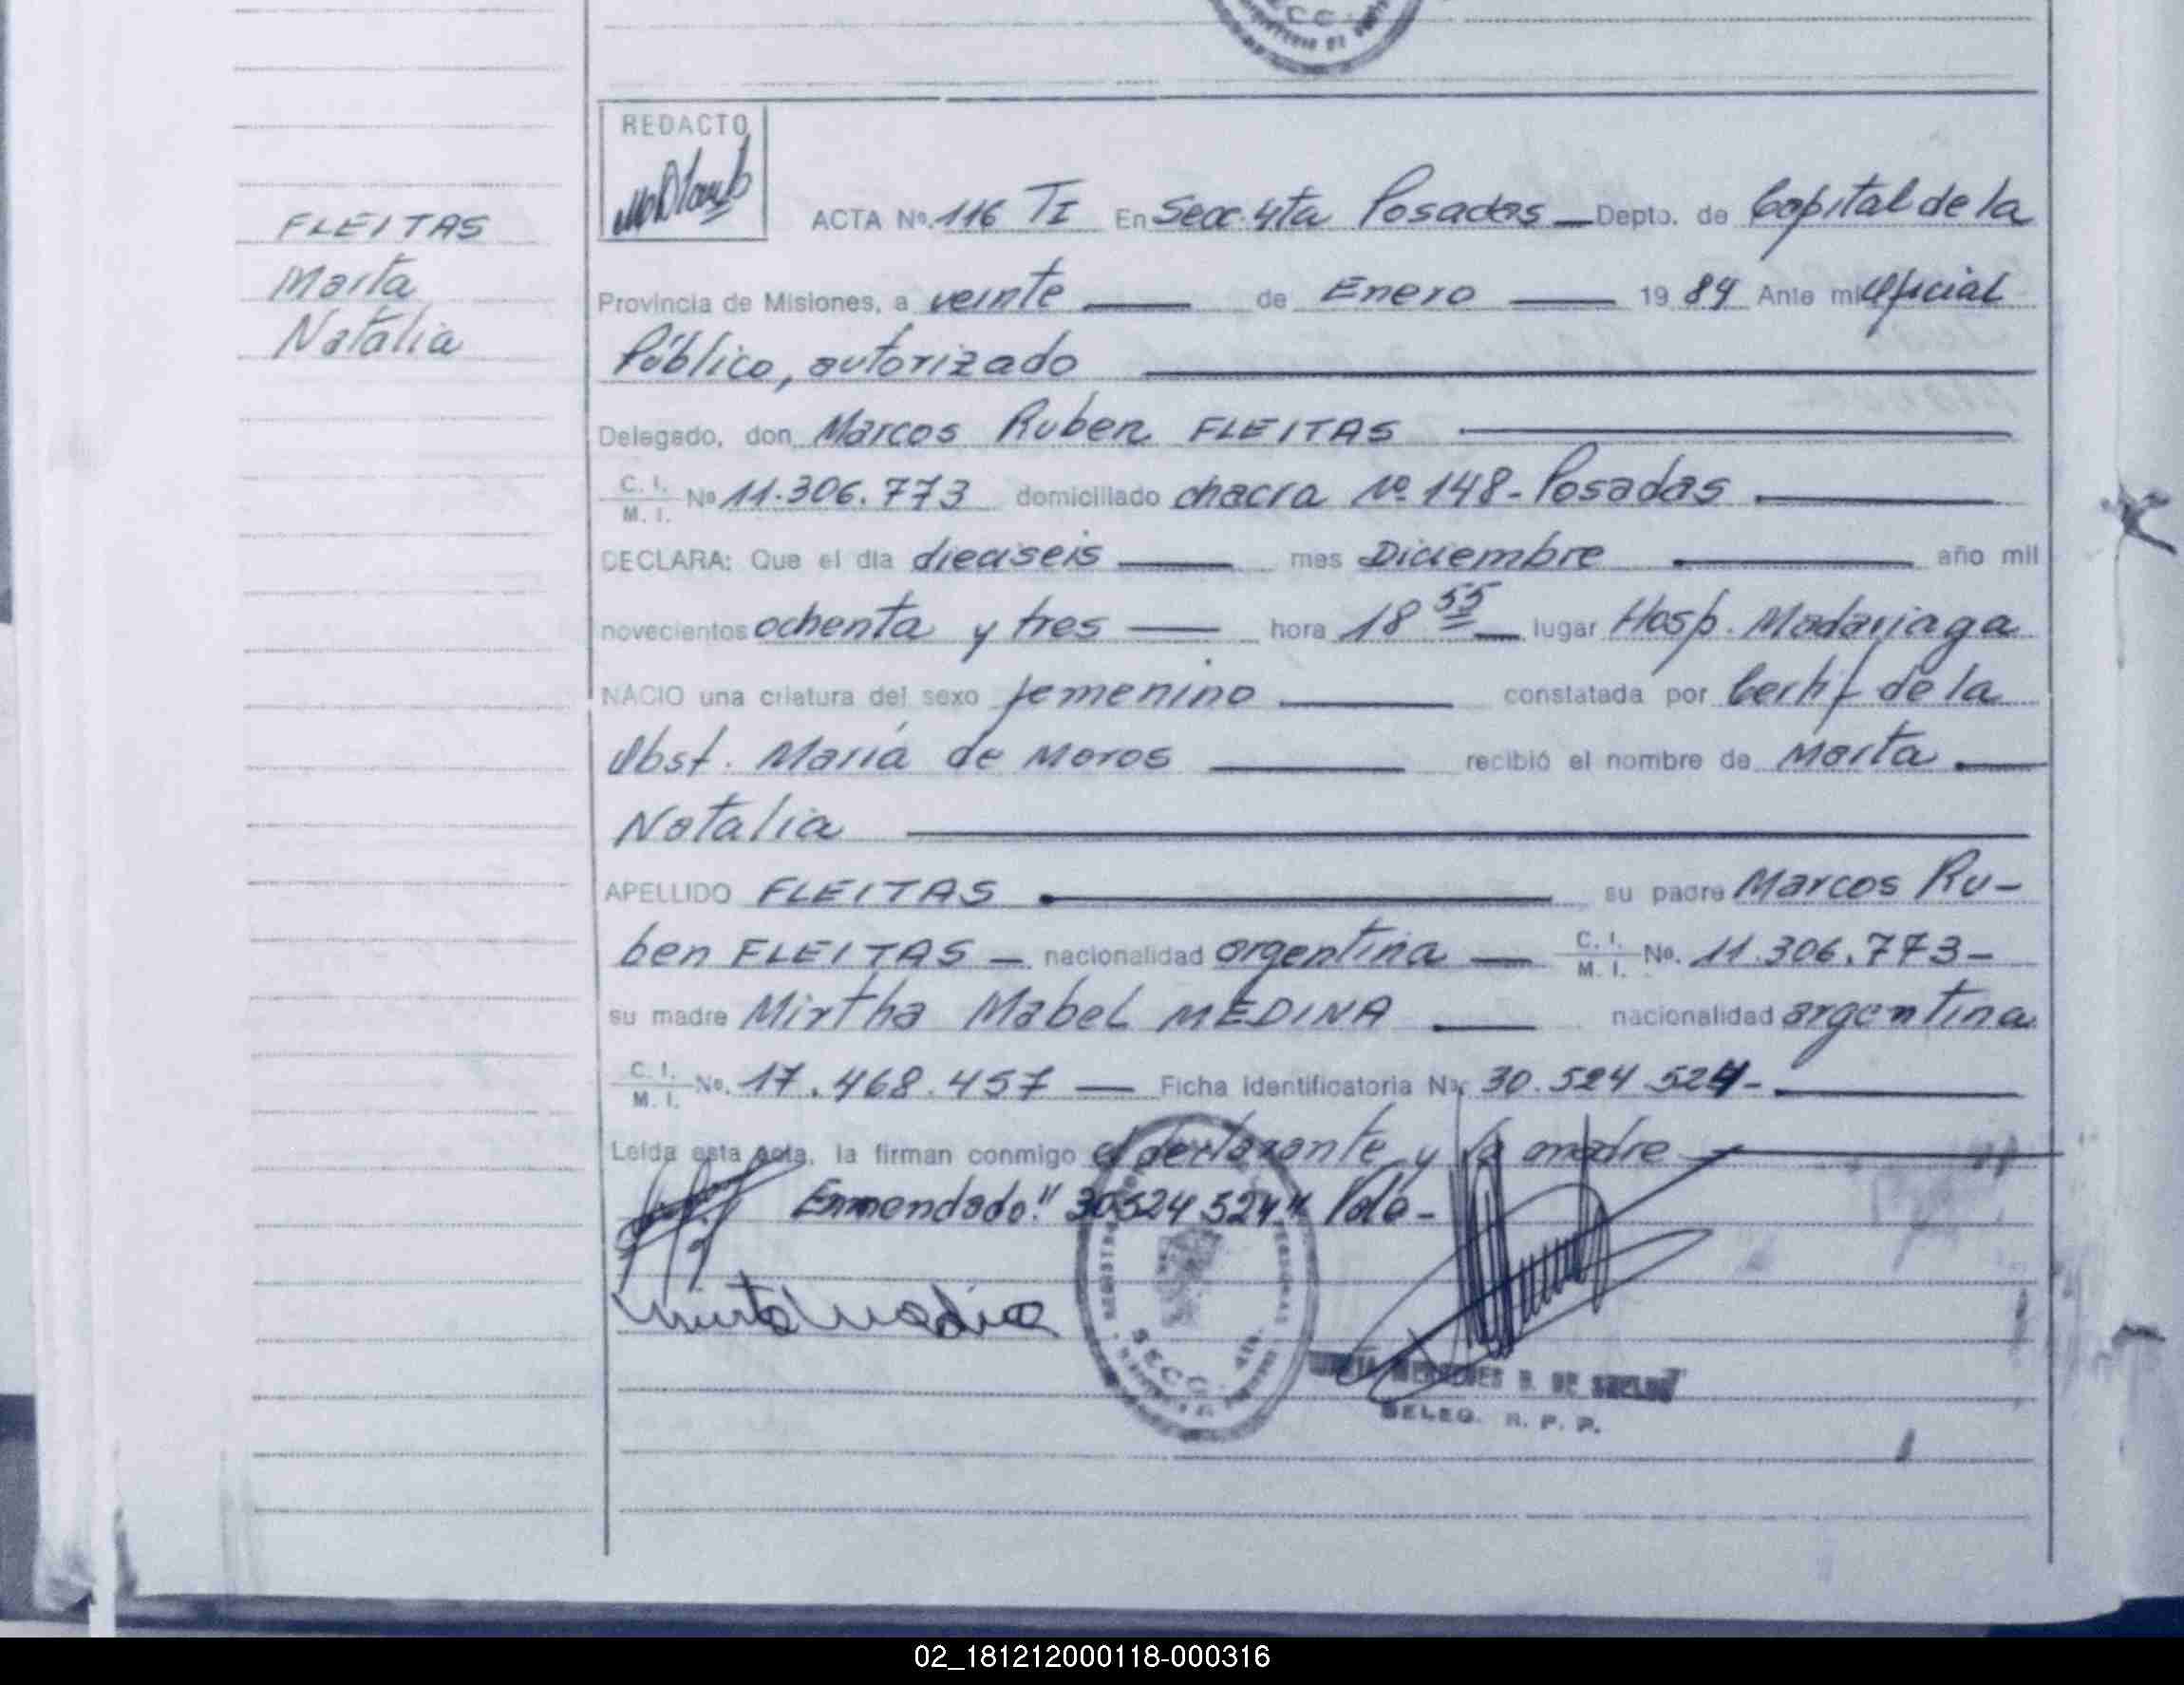 C C
REDACTO
FLEITAS
Marta
Natalia
ACTA No. 116 TI En Secc. 4ta Posadas Depto. de Capital de la
Provincia de Misiones, a veinte de Enero 1984 Ante mi Oficial
Público, autorizado
Delegado, don Marcos Ruben FLEITAS
C. I. M. I. No 11.306.773 domiciliado chacra No. 148-Posadas
DECLARA: Que el dia dieciseis mes Diciembre año mil
novecientos ochenta y tres hora 18 55 lugar Hosp. Madariaga
NACIO una criatura del sexo femenino constatada por Certif de la
Obst. María de Moros recibió el nombre de Marta
Natalia
APELLIDO FLEITAS su padre Marcos Ru-
ben FLEITAS - nacionalidad argentina - C. I. M. I. No. 11.306.773-
su madre Mirtha Mabel MEDINA nacionalidad argentina
C. I. M. I. No. 17.468.457 - Ficha identificatoria No 30.524.524-
Leida esta acta, la firman conmigo el declarante y la madre
Enmendado: "30524524" Vale-
SECC. 4ta.
DE
DELEG. R. P. P.
02_181212000118-000316